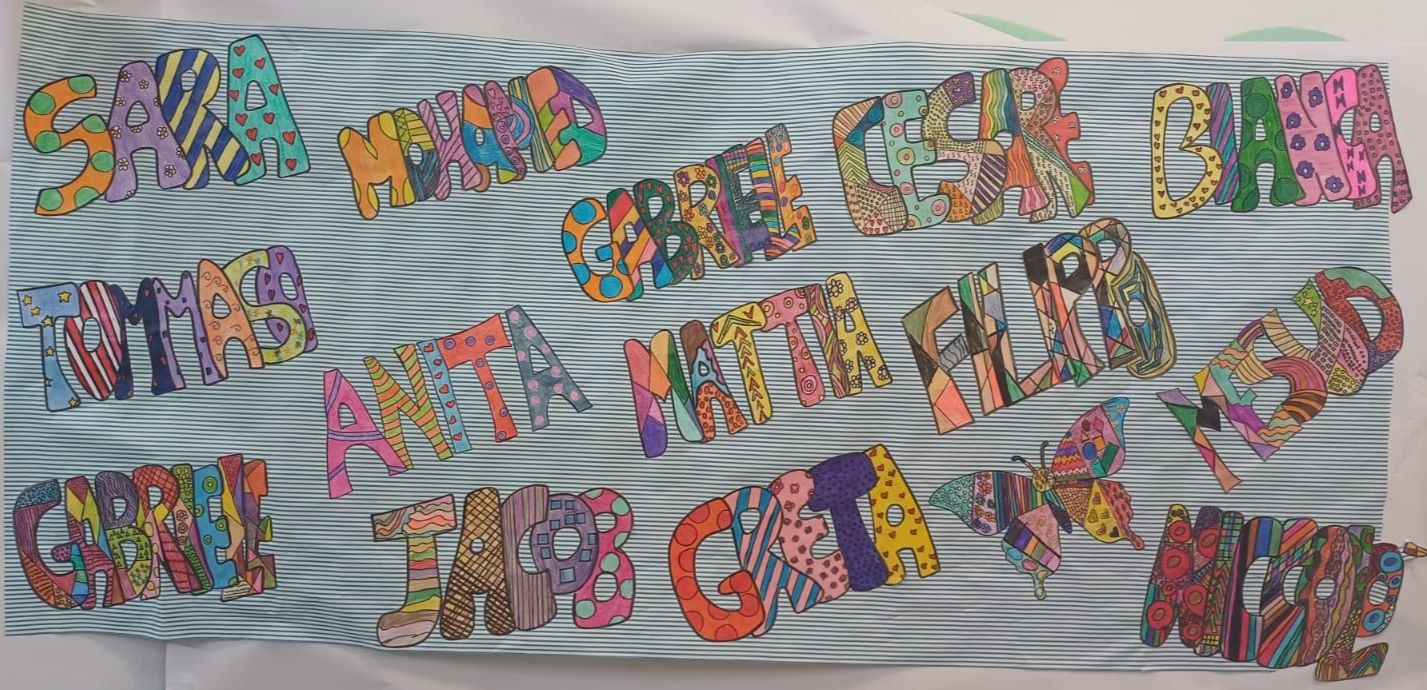 SARA
MOHAMED
CESARE
BIANCA
GABRIELE
TOMMASO
ANITA
MATTIA
FILIPPO
GABRIELE
JACOB
GRETA